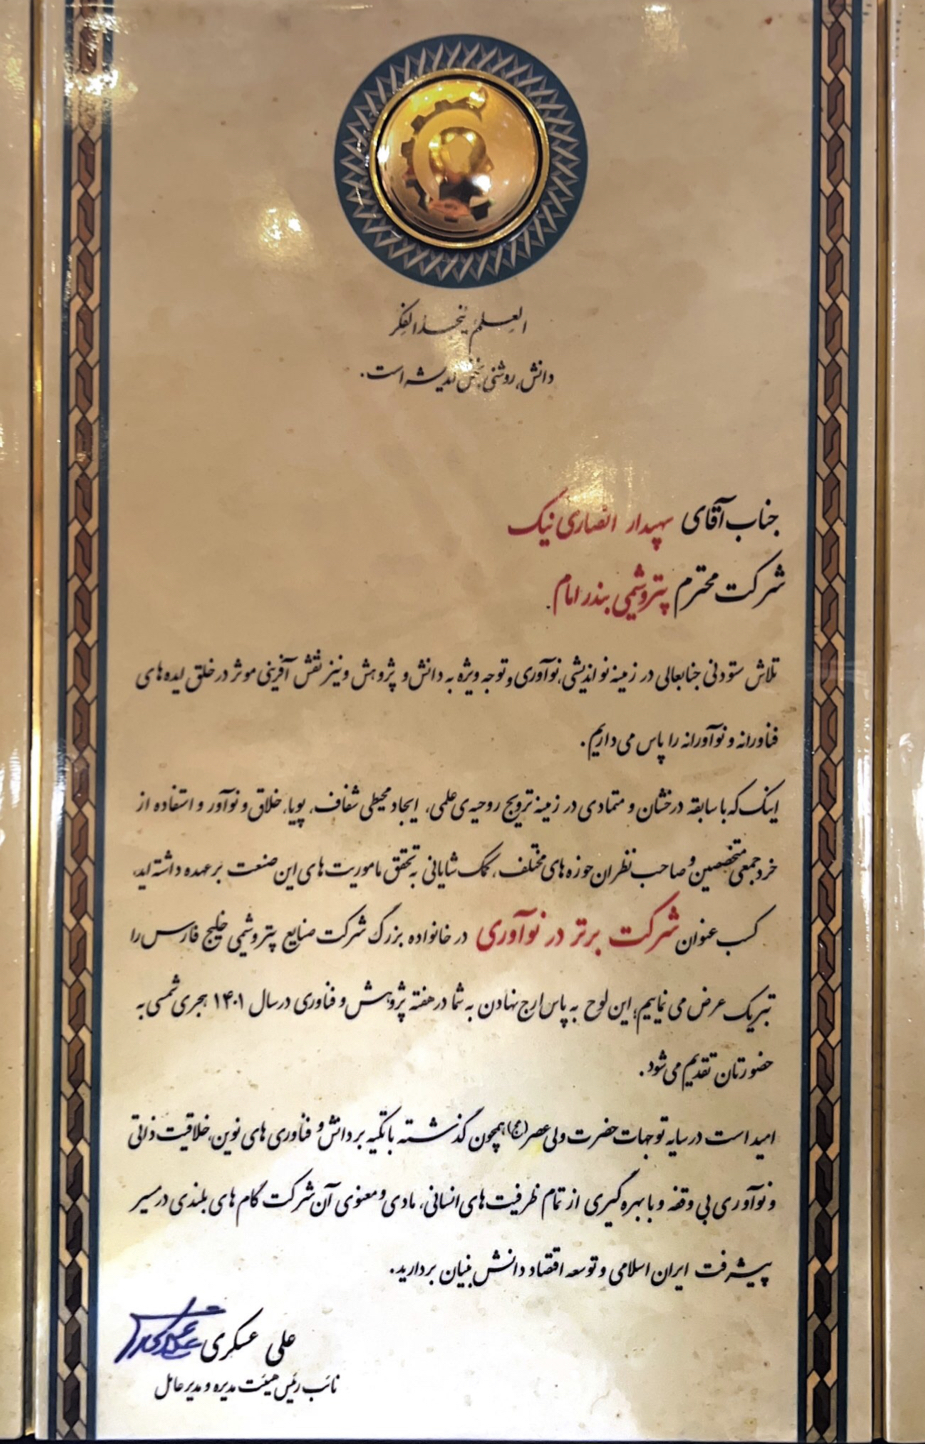 العلم ینجد الفکر
دانش، روشنی بخش اندیشه است.
جناب آقای سپهدار انصاری نیک
شرکت محترم پتروشیمی بندر امام.
تلاش ستودنی جنابعالی در زمینه نواندیشی، نوآوری و توجه ویژه به دانش و پژوهش و نیز نقش آفرینی موثر در خلق ایده های
فناورانه و نوآورانه را پاس می داریم.
اینک که با سابقه درخشان و متمادی در زمینه ترویج روحیه ی علمی، ایجاد محیطی شفاف، پویا، خلاق و نوآور و استفاده از
خرد جمعی متخصصین و صاحب نظران حوزه های مختلف، کمک شایانی به تحقق ماموریت های این صنعت بر عهده داشته اید،
کسب عنوان شرکت برتر در نوآوری در خانواده بزرگ شرکت صنایع پتروشیمی خلیج فارس را
تبریک عرض می نماییم؛ این لوح به پاس ارج نهادن به شما در هفته پژوهش و فناوری در سال ۱۴۰۱ هجری شمسی به
حضورتان تقدیم می شود.
امید است در سایه توجهات حضرت ولی عصر(عج) همچون گذشته با تکیه بر دانش و فناوری های نوین، خلاقیت ذاتی
و نوآوری بی وقفه و با بهره گیری از تمام ظرفیت های انسانی، مادی و معنوی آن شرکت گام های بلندی در مسیر
پیشرفت ایران اسلامی و توسعه اقتصاد دانش بنیان بردارید.
علی عسکری
نائب رئیس هیئت مدیره و مدیر عامل